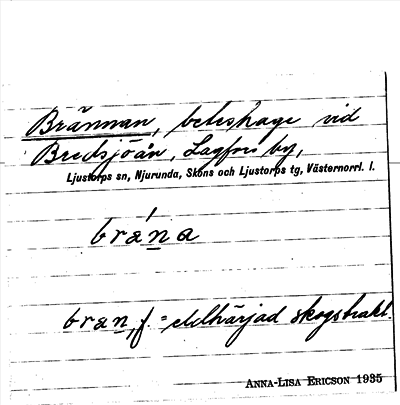 Brännan, beteshage vid
Bredsjöån, Lagfors by,
Ljustorps sn, Njurunda, Sköns och Ljustorps tg, Västernorrl. l.
bræ̀na
bræn, f. = eldhärjad skogstrakt.
ANNA-LISA ERICSON 1935